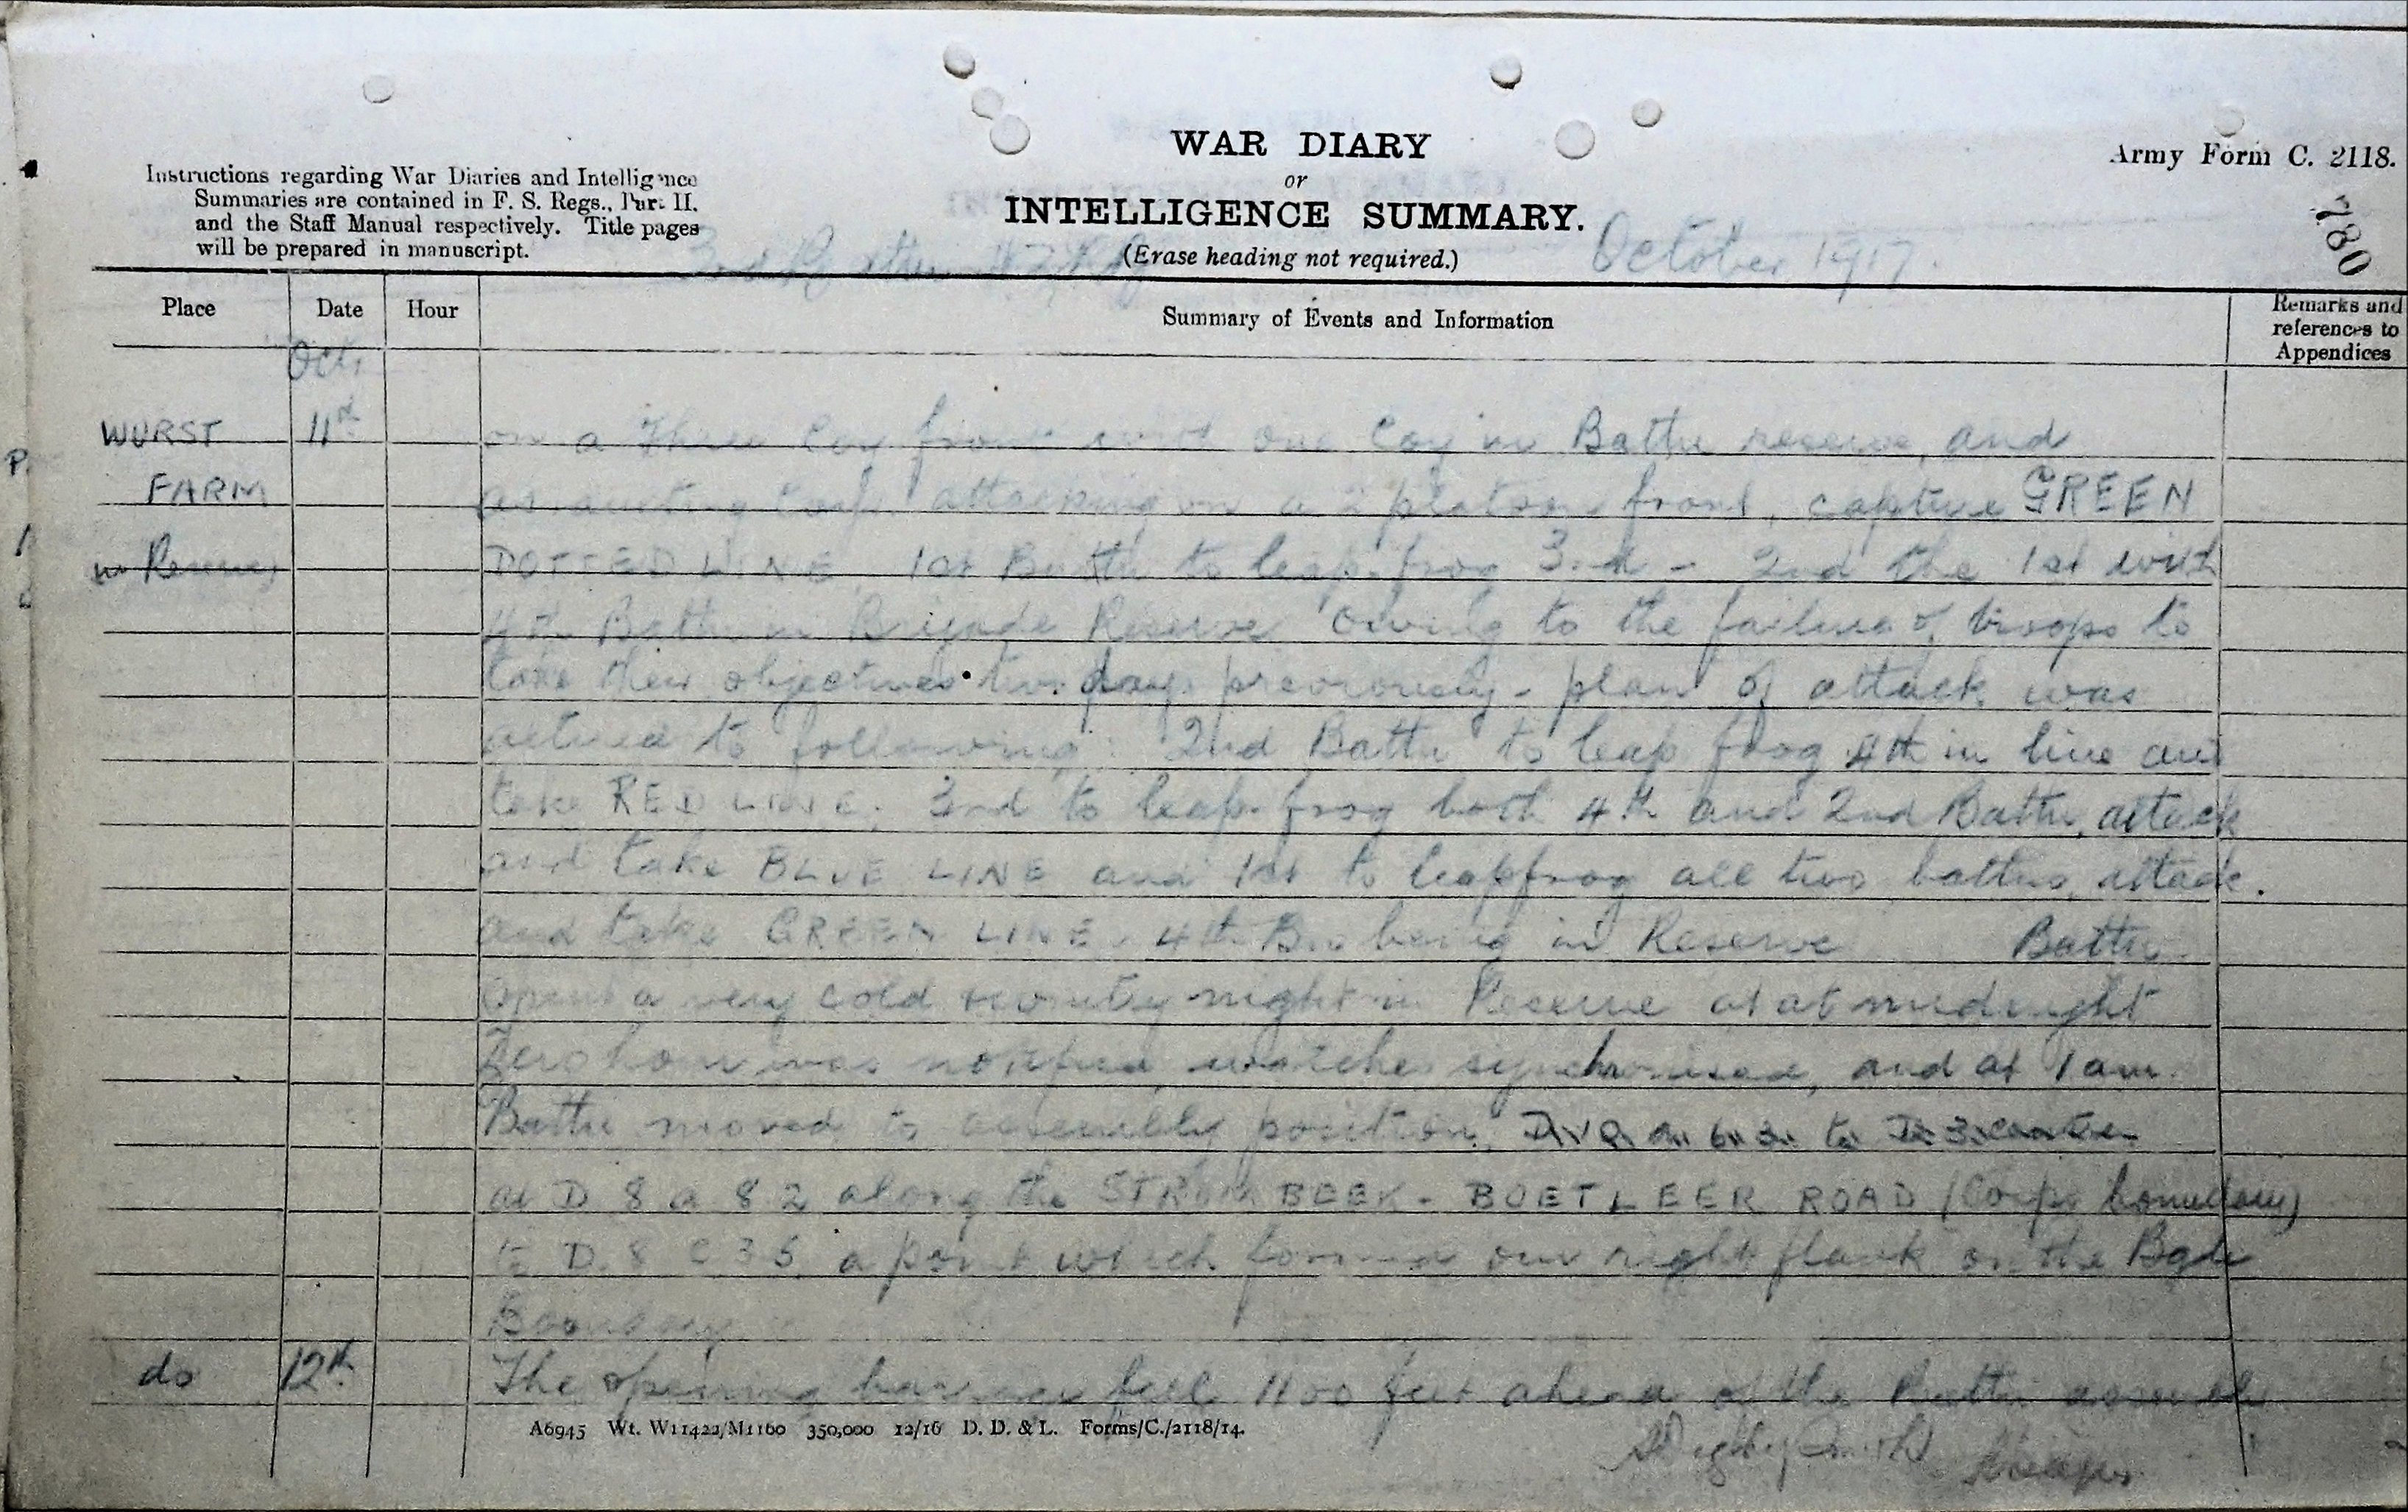 WAR DIARY
or
INTELLIGENCE SUMMARY.
(Erase heading not required.)
Army Form C. 2118.
Instructions regarding War Diaries and Intelligence
Summaries are contained in F. S. Regs., Part II.
and the Staff Manual respectively. Title pages
will be prepared in manuscript.
3rd Battn N.Z.R.B.
October 1917.
780
Place Date Hour Summary of Events and Information Remarks and references to Appendices
Oct.
WURST 11th on a three Coy front with one Coy in Battn reserve, and
FARM attacking on a 2 platoon front, capture GREEN
in Reserve DOTTED LINE. 1st Battn to leap-frog 3rd - 2nd the 1st with
4th Battn in Brigade Reserve Owing to the failure of troops to
take their objectives two days previously - plan of attack was
altered to following: 2nd Battn to leap frog 4th in line and
take RED LINE. 3rd to leap-frog both 4th and 2nd Battn, attack
and take BLUE LINE and 1st to leapfrog all two battns, attack.
and take GREEN LINE. 4th Bn being in Reserve Battn
spent a very cold night in Reserve at midnight
Zero hour was notified, watches synchronised, and at 1 am
Battn moved to assembly position,
at D 8 a 8 2 along the STROMBEEK - BOETLEER ROAD (Corps boundary)
to D.8 C 3 5 a point which formed our right flank on the Bgde
Boundary
do 12th The opening barrage fell 1100 feet ahead of the Battn assembly
A6945 Wt. W11422/M1160 350,000 12/16 D. D. & L. Forms/C./2118/14.
Digby Smith